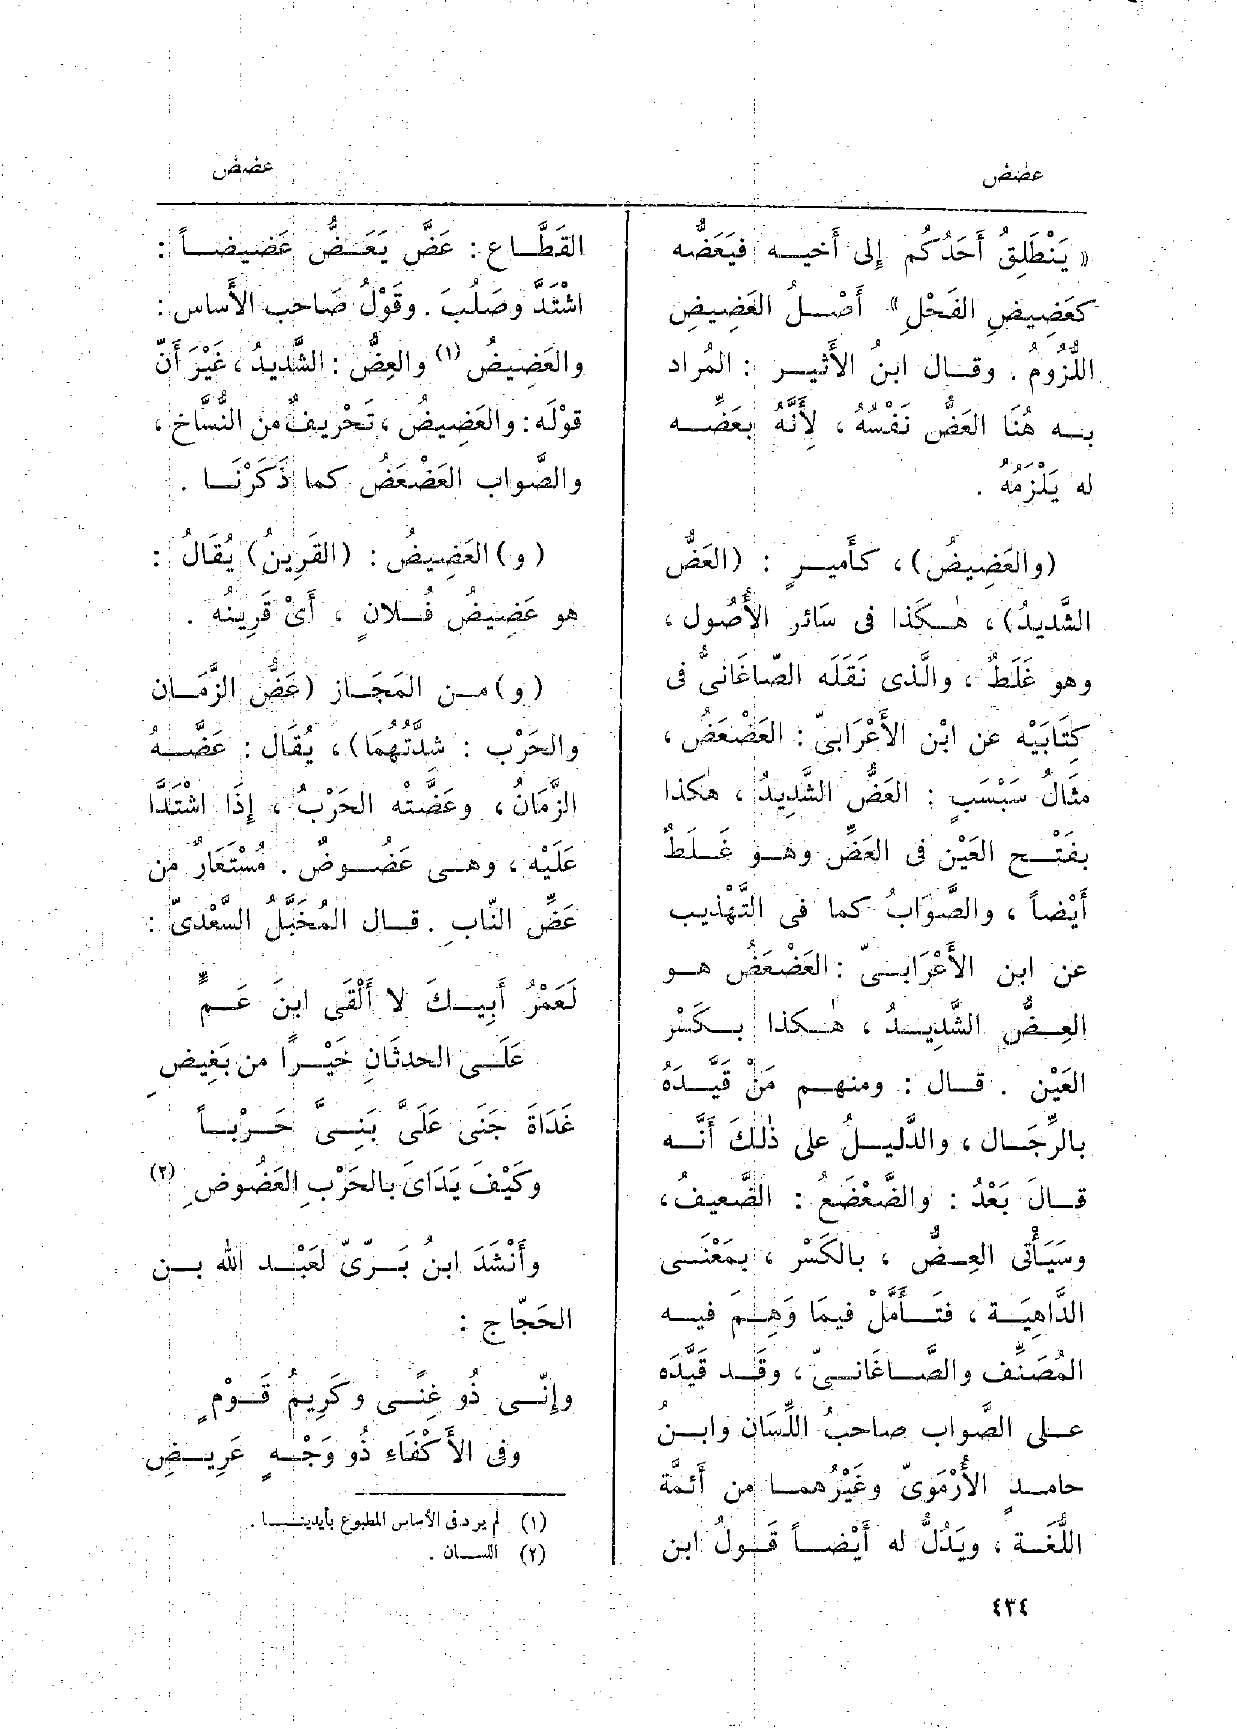 عضض
عضض
« يَنْطَلِقُ أَحَدُكُم إلى أَخيـه فيَعَضُّه
كعَضِيضِ الفَحْلِ » أَصْـلُ العَضِيضِ
اللُّزُومُ . وقـال ابنُ الأَثيـر : المُراد
بـه هُنَا العَضُّ نَفْسُهُ ، لِأَنَّهُ بعَضِّـه
له يَلْزَمُهُ .
(والعَضِيضُ) ، كأَميـرٍ : (العَضُّ
الشَّدِيدُ) ، هٰـكَذا فى سَائر الأُصُول ،
وهو غَلَطٌ ، والَّذى نَقَلَه الصّاغَانىُّ فى
كِتَابَيْه عن ابْن الأَعْرَابىّ : العَضْعَضُ ،
مثَالُ سَبْسَبٍ : العَضُّ الشَّدِيدُ ، هٰكذا
بفَتْـح العَيْن فى العَضِّ وهـو غَـلَطٌ
أَيْضاً ، والصَّوَابُ كما فى التَّهْذِيب
عن ابن الأَعْرَابـىّ : العَضْعَضُ هـو
العِـضُّ الشَّدِيـدُ ، هٰـكذا بـكَسْر
العَيْن . قـال : ومنهـم مَنْ قَيَّـدَهُ
بالرِّجَـال ، والدَّلِيـلُ على ذٰلكَ أَنَّـه
قـالَ بَعْدُ : والضَّعْضَعُ : الضَّعِيفُ ،
وسَيَأْتى العِـضُّ ، بالكَسْر ، بمَعْنَـى
الدَّاهِيَـة ، فتَـأَمَّلْ فيمَا وَهِـمَ فيـه
المُصَنِّف والصَّـاغَانـىّ ، وقَـد قَيَّدَه
عـلى الصَّواب صاحبُ اللِّسَان وابـنُ
حامـدٍ الأُرْمَوىّ وغَيْرُهمـا من أَئمَّة
اللُّغَـة ، ويَدُلُّ له أَيْضـاً قَـولُ ابن
القَطَّـاع : عَضَّ يَعَـضُّ عَضِيضـاً :
اشْتَدَّ وصَلُبَ . وقَوْلُ صَاحب الأَساس :
والعَضِيضُ (١) والعِضُّ : الشَّدِيدُ ، غَيْرَ أَنّ
قوْلَه : والعَضِيضُ ، تَحْرِيفٌ من النُّسَّاخ ،
والصَّواب العَضْعَضُ كما ذَكَرْنَـا .
( و ) العَضِيضُ : (القَرِينُ) يُقَالُ :
هو عَضِيضُ فُـلانٍ ، أَىْ قَرِينُه .
( و ) مـن المَجَـاز (عَضُّ الزَّمَـان
والحَرْب : شدَّتُهُمَا) ، يُقَال : عَضَّـهُ
الزَّمَانُ ، وعَضَّتْه الحَرْبُ ، إِذَا اشْتَدَّا
عَلَيْه ، وهـى عَضُـوضٌ . مُسْتَعَارٌ من
عَضِّ النّاب . قـال المُخَبَّلُ السَّعْدىّ :
لَعَمْرُ أَبِيـكَ لا أَلْقَى ابنَ عَـمٍّ
عَلَـى الحدثَانِ خَيْـرًا من بَغِيضِ
غَدَاةَ جَنَى عَلَىَّ بَنِـىَّ حَـرْبـاً
وكَيْفَ يَدَاىَ بالحَرْبِ العَضُوضِ (٢)
وأَنْشَدَ ابنُ بَـرّىّ لعَبْـد الله بـن
الحَجّاج :
وإِنّـى ذُو غِنًـى وكَرِيمُ قَـوْمٍ
وفى الأَكْفَاءِ ذُو وَجْـهٍ عَرِيـضِ
(١) لم يرد فى الأساس المطبوع بأيدينـا .
(٢) اللسـان .
٤٣٤